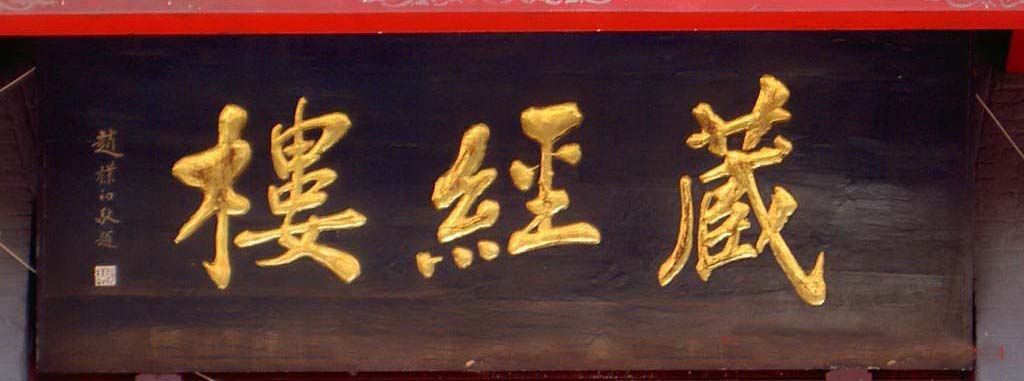 藏經樓
趙樸初敬題